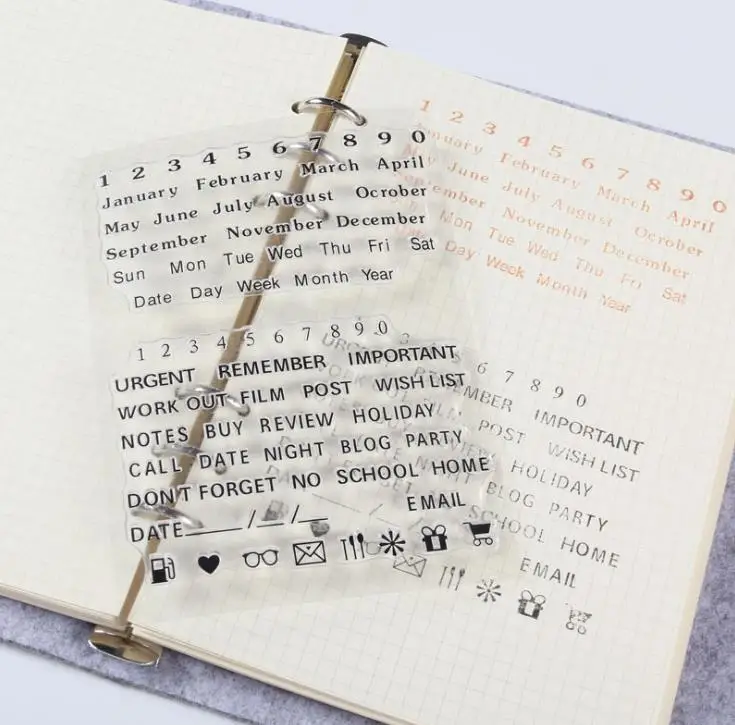 1 2 3 4 5 6 7 8 9 0
January February March April
May June July August October
September November December
Sun Mon Tue Wed Thu Fri Sat
Date Day Week Month Year
1 2 3 4 5 6 7 8 9 0
URGENT REMEMBER IMPORTANT
WORK OUT FILM POST WISH LIST
NOTES BUY REVIEW HOLIDAY
CALL DATE NIGHT BLOG PARTY
DON'T FORGET NO SCHOOL HOME
DATE____/__/__ EMAIL
1 2 3 4 5 6 7 8 9 0
January February March April
June July August October
November December
Mon Tue Wed Thu Fri Sat
Day Week Month Year
6 7 8 9 0
IMPORTANT
POST WISH LIST
HOLIDAY
BLOG PARTY
SCHOOL HOME
EMAIL